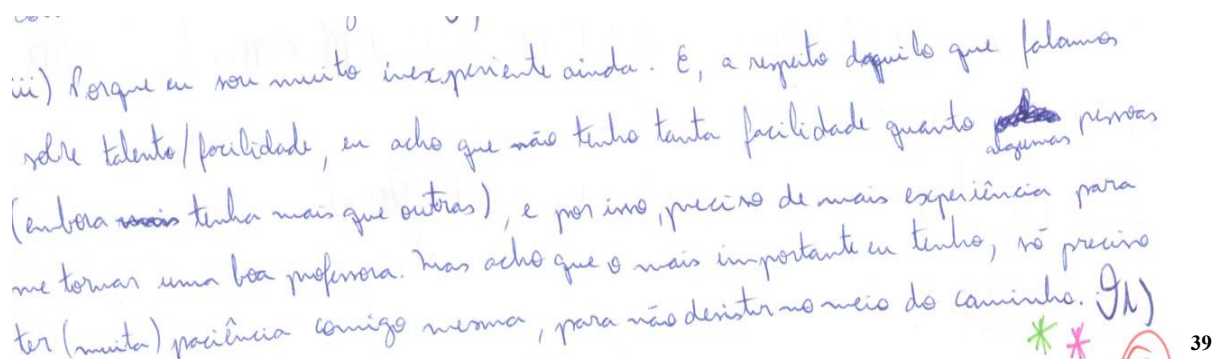 iii) Porque eu sou muito inexperiente ainda. E, a respeito daquilo que falamos
sobre talento/facilidade, eu acho que não tenho tanta facilidade quanto algumas pessoas
(embora tenha mais que outras), e por isso, preciso de mais experiência para
me tornar uma boa professora. Mas acho que o mais importante eu tenho, só preciso
ter (muita) paciência comigo mesma, para não desistir no meio do caminho.
39